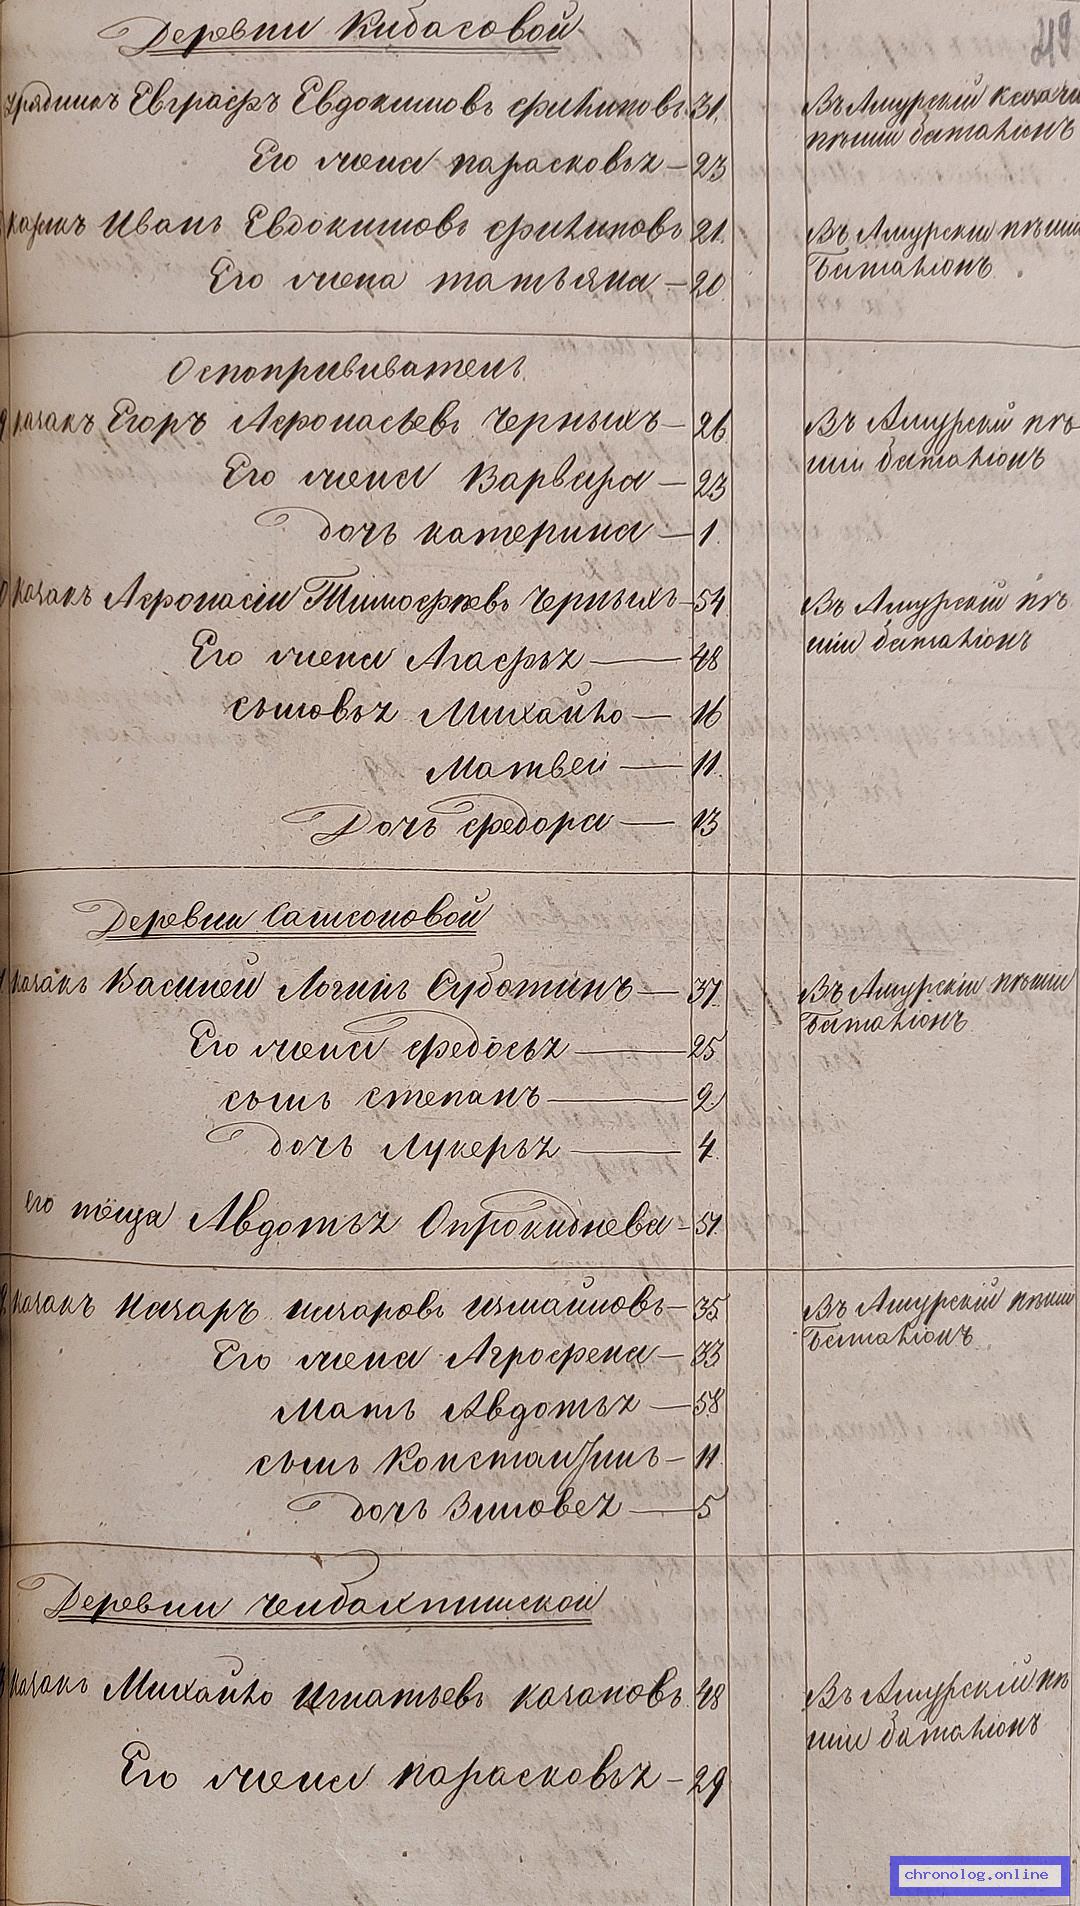 Деревни Кибасовой
49
Урядникъ Евграфъ Евдокимовъ филиповъ 31. Въ Амурскій казачи
пѣшии баталіонъ
Его жена парасковья — 23
Иванъ Евдокимовъ филиповъ 21. Въ Амурскии пѣшии
баталіонъ.
Его жена татьяна — 20
Оспопрививатель
казакъ Егоръ Афонасьевъ Черныхъ — 26 Въ Амурскій пѣ-
шіи баталіонъ
Его жена Варвара — 23
дочь катерина — 1.
казакъ Афонасіи Тимофѣевъ Черныхъ — 54 Въ Амурскій пѣ-
шіи баталіонъ
Его жена Агафья — 48
сыновья Михайло — 16
Матвеи — 11.
Дочь федора — 13
Деревни Самсоновой
казакъ Василей Логинъ Суботинъ — 37. Въ Амурскіи пѣшіи
баталіонъ
Его жена федосья — 25
сынъ степанъ — 9
дочь Лукерья — 4.
его тёща Авдотья Опрокиднева — 51.
казакъ Назаръ назаровъ измаиловъ — 35 Въ Амурскій пѣшіи
баталіонъ.
Его жена Агрофена — 33
Мать Авдотья — 58
сынъ Константинъ — 11
дочь Зиновея — 5
Деревни
казакъ Михайло Игнатьевъ казаковъ 48 Въ Амурскій пѣ
шіи баталіонъ
Его жена парасковья — 29
chronolog.online